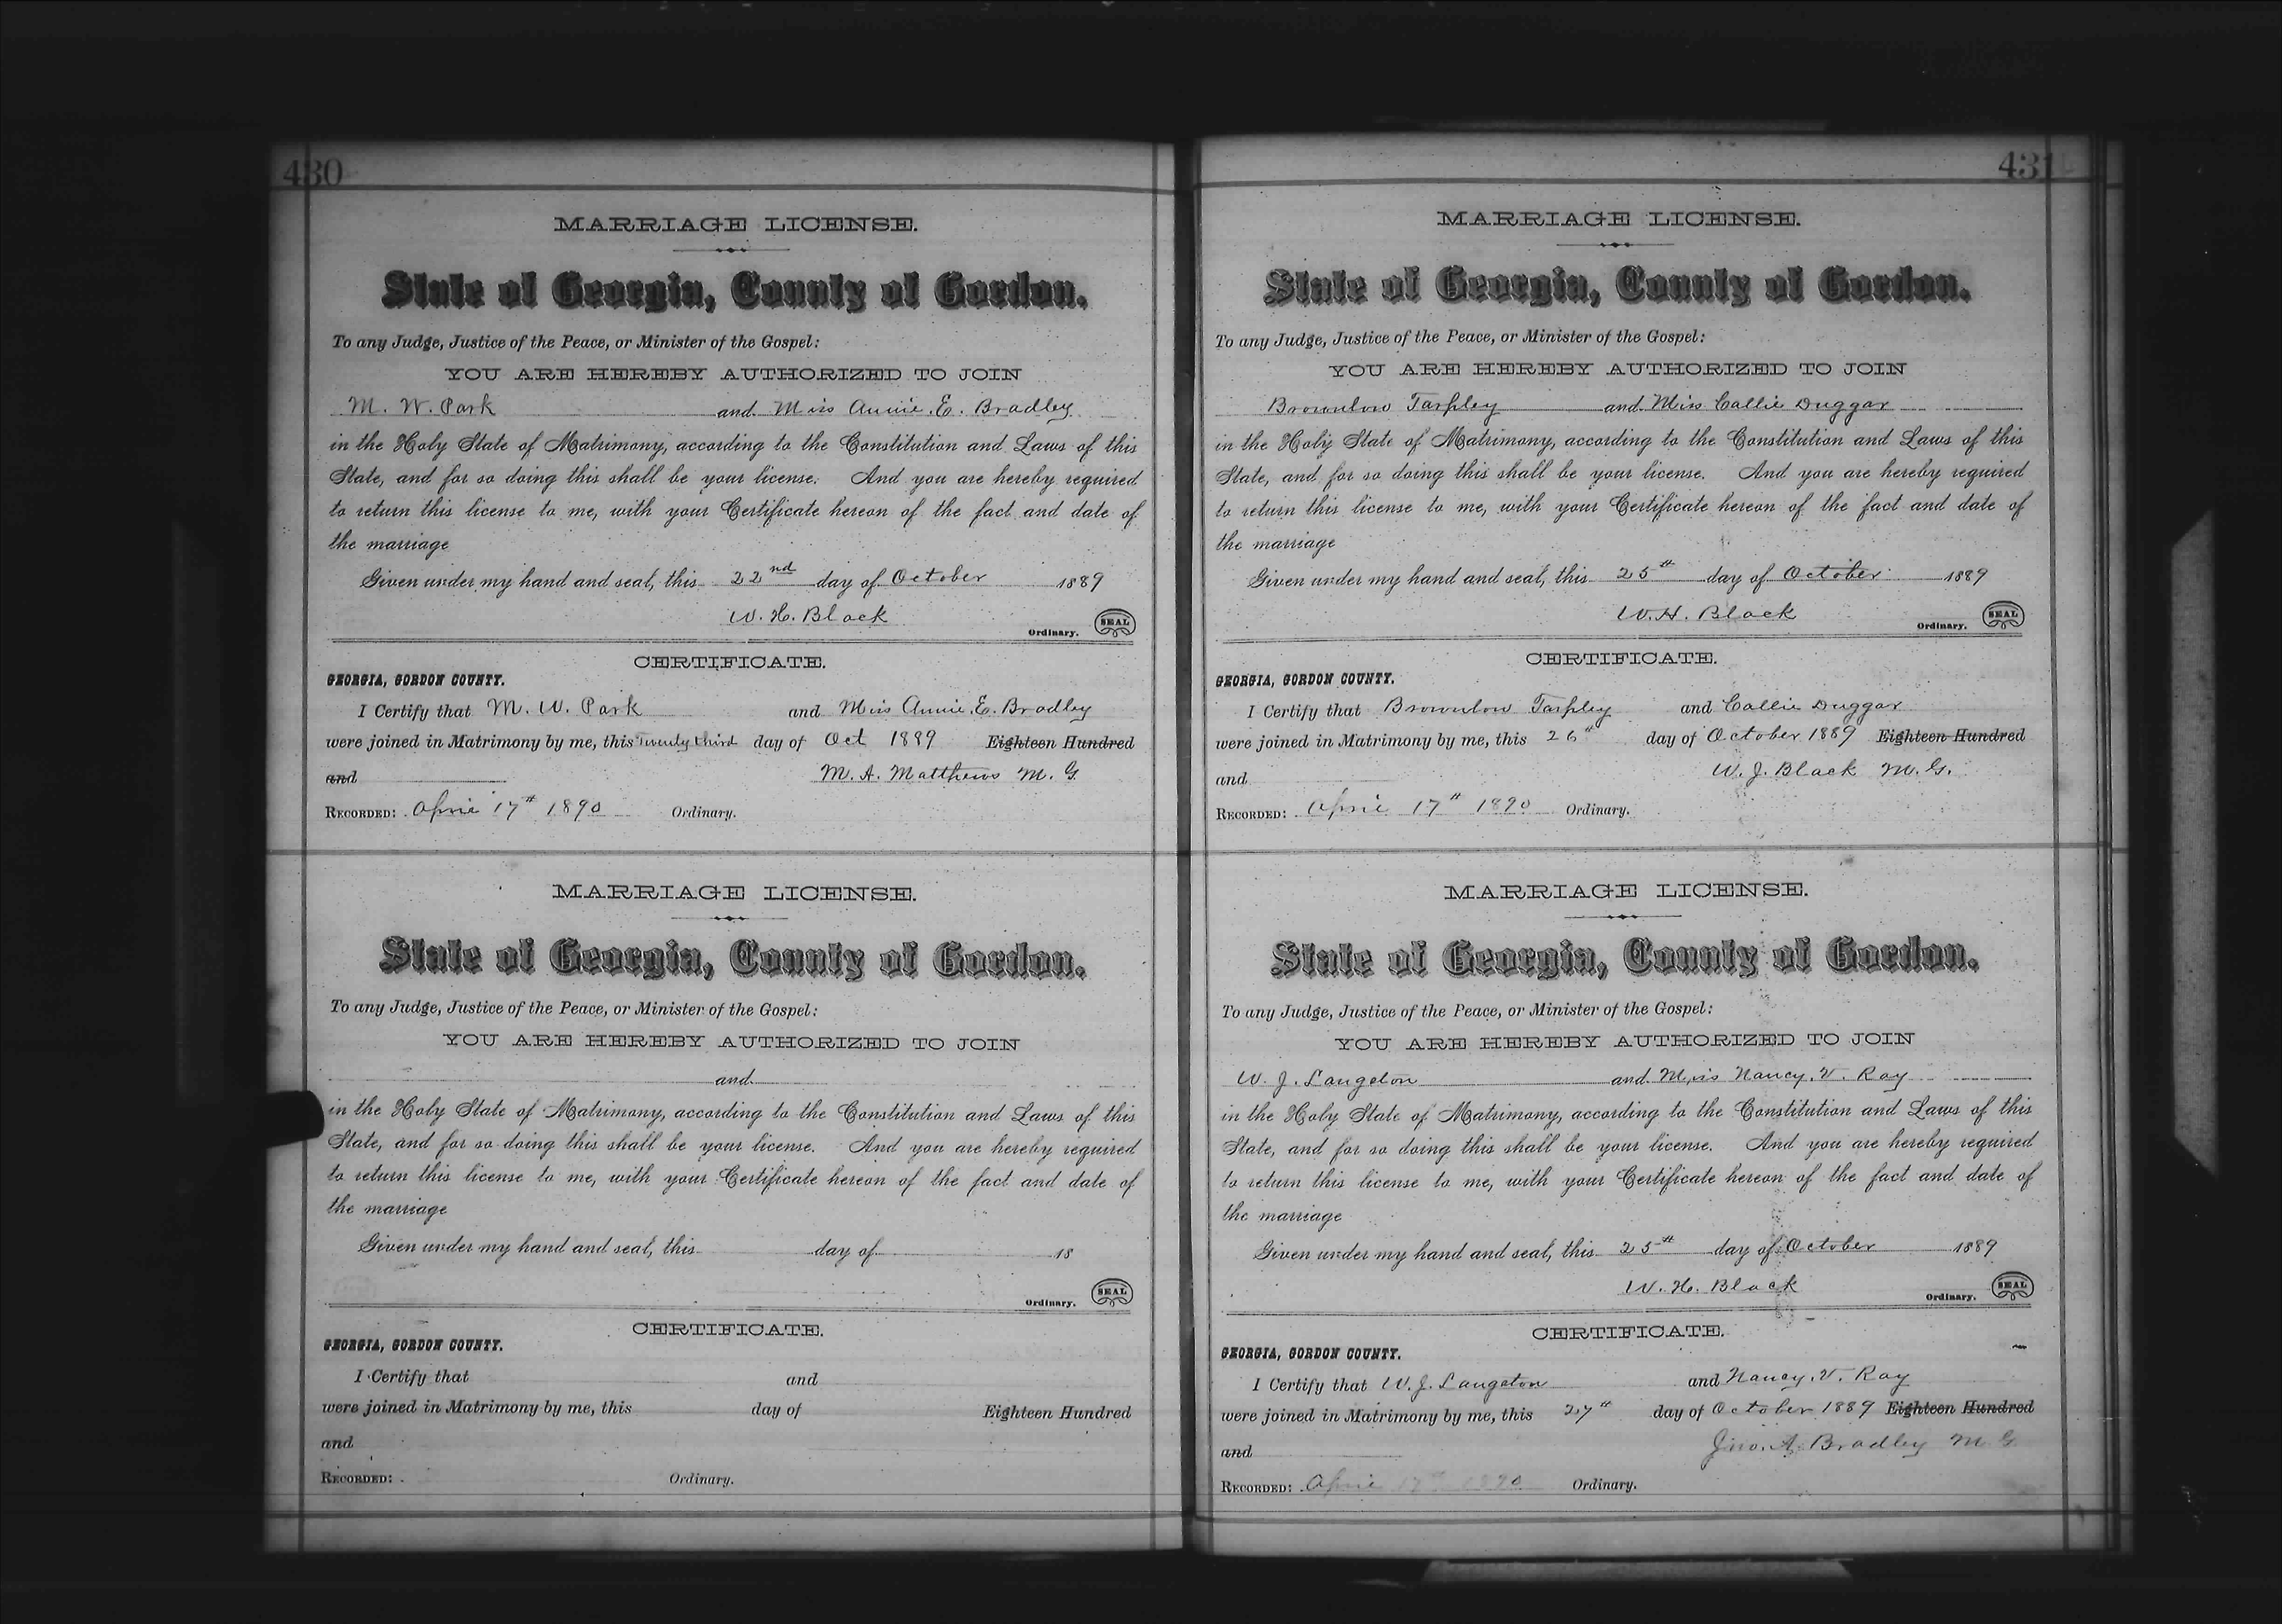 430
MARRIAGE LICENSE.
State of Georgia, County of Gordon.
To any Judge, Justice of the Peace, or Minister of the Gospel:
YOU ARE HEREBY AUTHORIZED TO JOIN
M. W. Park and Miss Annie. E. Bradley
in the Holy State of Matrimony, according to the Constitution and Laws of this
State, and for so doing this shall be your license. And you are hereby required
to return this license to me, with your Certificate hereon of the fact and date of
the marriage
Given under my hand and seal, this 22nd day of October 1889
W. H. Black
Ordinary. SEAL
CERTIFICATE.
GEORGIA, GORDON COUNTY.
I Certify that M. W. Park and Miss Annie. E. Bradley
were joined in Matrimony by me, this Twenty third day of Oct 1889 Eighteen Hundred
and M. A. Matthews M. G
RECORDED: April 17th 1890 Ordinary.
MARRIAGE LICENSE.
State of Georgia, County of Gordon.
To any Judge, Justice of the Peace, or Minister of the Gospel:
YOU ARE HEREBY AUTHORIZED TO JOIN
and
in the Holy State of Matrimony, according to the Constitution and Laws of this
State, and for so doing this shall be your license. And you are hereby required
to return this license to me, with your Certificate hereon of the fact and date of
the marriage
Given under my hand and seal, this day of 18
Ordinary. SEAL
CERTIFICATE.
GEORGIA, GORDON COUNTY.
I Certify that and
were joined in Matrimony by me, this day of Eighteen Hundred
and
RECORDED: Ordinary.
431
MARRIAGE LICENSE.
State of Georgia, County of Gordon.
To any Judge, Justice of the Peace, or Minister of the Gospel:
YOU ARE HEREBY AUTHORIZED TO JOIN
Brownlow Tarpley and Miss Callie Duggar
in the Holy State of Matrimony, according to the Constitution and Laws of this
State, and for so doing this shall be your license. And you are hereby required
to return this license to me, with your Certificate hereon of the fact and date of
the marriage
Given under my hand and seal, this 25th day of October 1889
W. H. Black
Ordinary. SEAL
CERTIFICATE.
GEORGIA, GORDON COUNTY.
I Certify that Brownlow Tarpley and Callie Duggar
were joined in Matrimony by me, this 26th day of October 1889 Eighteen Hundred
and W. J. Black M. G.
RECORDED: April 17th 1890 Ordinary.
MARRIAGE LICENSE.
State of Georgia, County of Gordon.
To any Judge, Justice of the Peace, or Minister of the Gospel:
YOU ARE HEREBY AUTHORIZED TO JOIN
W. J. Langston and Miss Nancy. V. Ray
in the Holy State of Matrimony, according to the Constitution and Laws of this
State, and for so doing this shall be your license. And you are hereby required
to return this license to me, with your Certificate hereon of the fact and date of
the marriage
Given under my hand and seal, this 25th day of October 1889
W. H. Black
Ordinary. SEAL
CERTIFICATE.
GEORGIA, GORDON COUNTY.
I Certify that W. J. Langston and Nancy. V. Ray
were joined in Matrimony by me, this 27th day of October 1889 Eighteen Hundred
and Jno. A. Bradley M G
RECORDED: April 17th 1890 Ordinary.